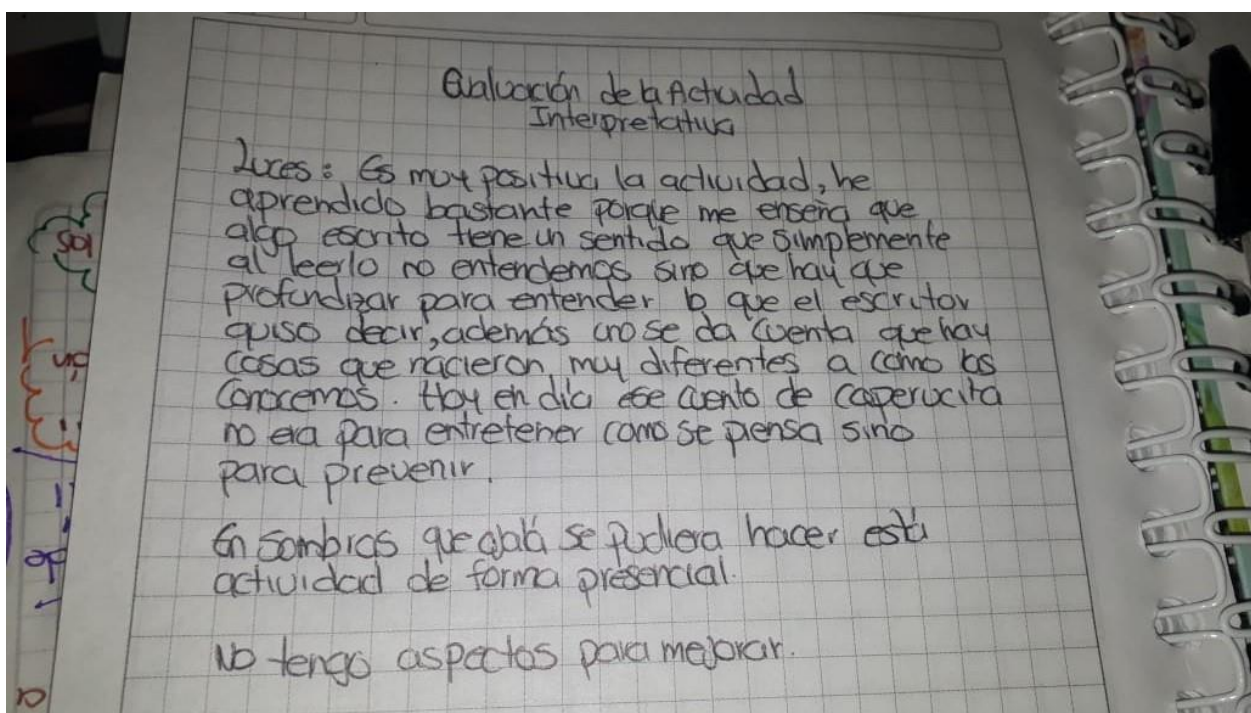 Evaluación de la Actividad
Interpretativa
Luces: Es muy positiva la actividad, he
aprendido bastante porque me enseña que
algo escrito tiene un sentido que simplemente
al leerlo no entendemos sino que hay que
profundizar para entender lo que el escritor
quiso decir, además uno se da cuenta que hay
cosas que nacieron muy diferentes a como los
conocemos. Hoy en día ese cuento de caperucita
no era para entretener como se piensa sino
para prevenir.
En sombras que ojalá se pudiera hacer está
actividad de forma presencial.
No tengo aspectos para mejorar.
los